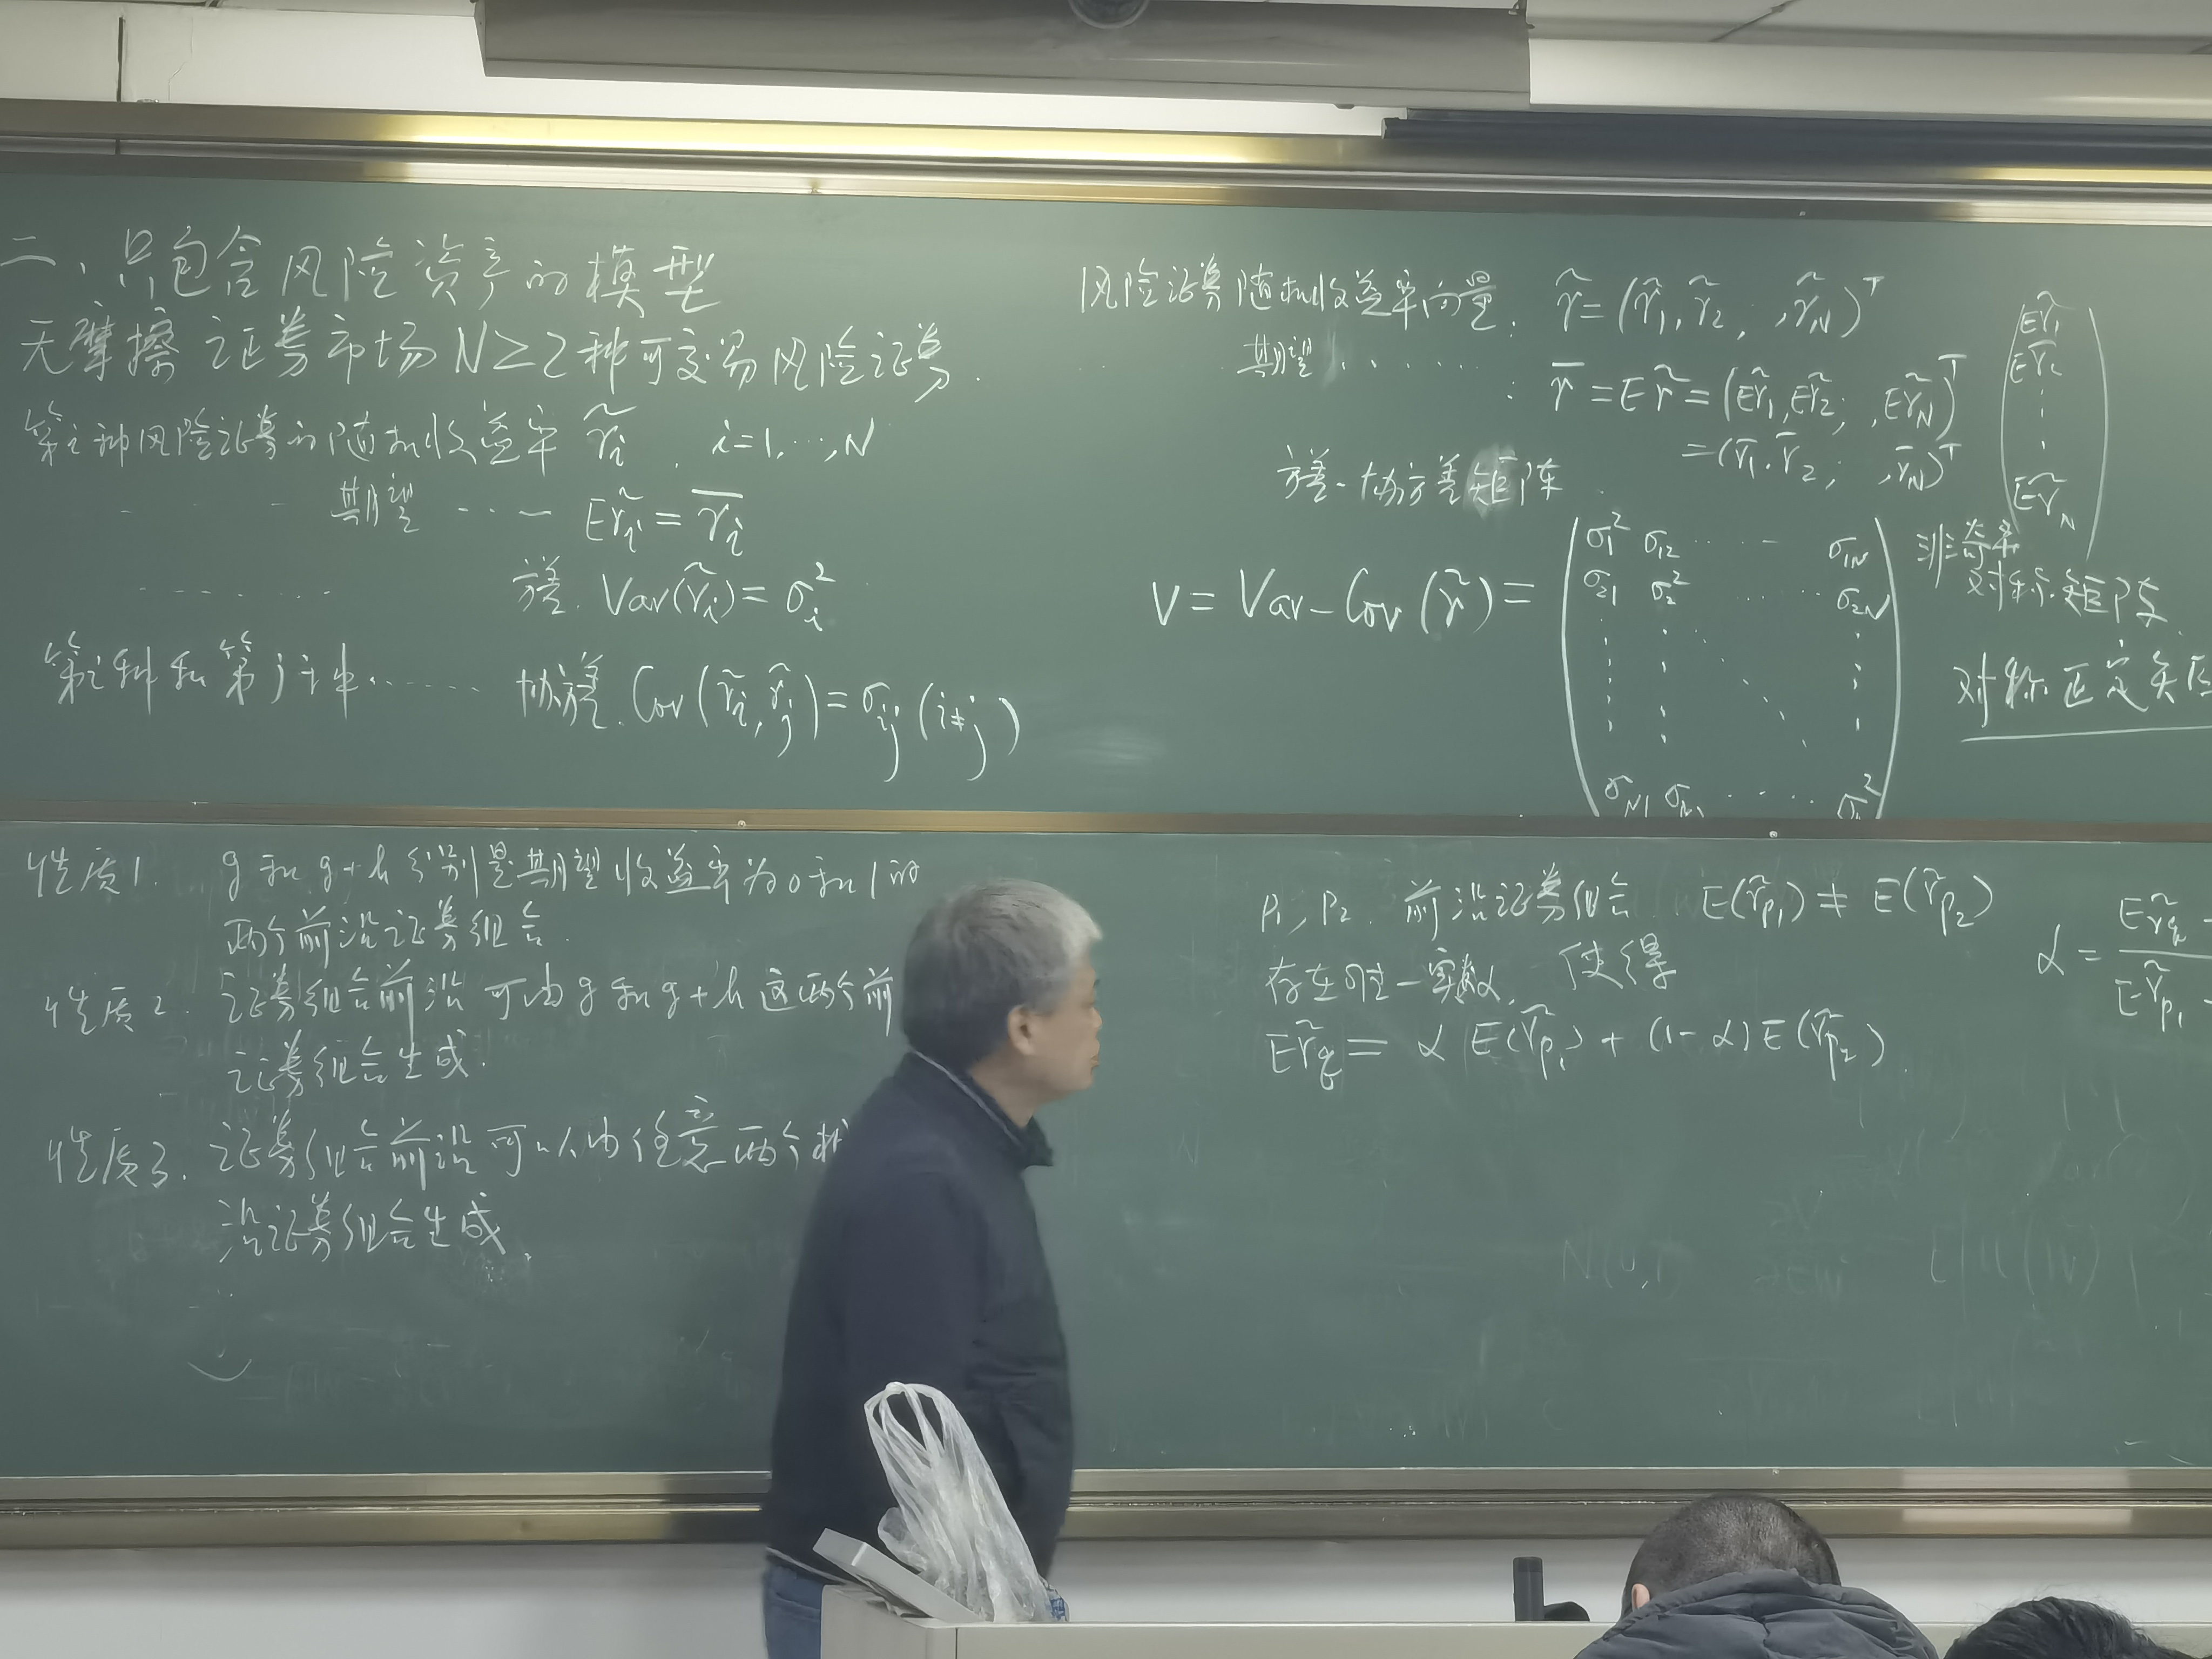 二、只包含风险资产的模型
无摩擦证券市场 N≥2种可交易风险证券.
第i种风险证券的随机收益率 r̃ᵢ, i=1,…,N
期望 ····— Er̃ᵢ = r̄ᵢ
········ 方差. Var(r̃ᵢ) = σᵢ²
第i种和第j种······ 协方差. Cov(r̃ᵢ, r̃ⱼ) = σᵢⱼ (i≠j)
风险证券随机收益率向量: r̃ = (r̃₁, r̃₂, , r̃_N)ᵀ
期望 ······ : r̄ = Er̃ = (Er̃₁, Er̃₂, , Er̃_N)ᵀ
= (r̄₁, r̄₂, , r̄_N)ᵀ
Er̃₁
Er̃₂
⋮
Er̃_N
方差-协方差矩阵
V = Var-Cov(r̃) =
σ₁² σ₁₂ ····- σ₁N
σ₂₁ σ₂² ······ σ₂N
σN₁ ······
非奇异
对称矩阵
对称正定矩
性质1. g和g+h分别是期望收益率为0和1的
两个前沿证券组合.
性质2. 证券组合前沿可由g和g+h这两个前
证券组合生成.
性质3. 证券组合前沿可以由任意两个
沿证券组合生成.
p₁, p₂. 前沿证券组合 E(r̃p₁) ≠ E(r̃p₂)
存在唯一实数α, 使得
Er̃q = αE(r̃p₁) + (1-α)E(r̃p₂)
α = Er̃q -
Er̃p₁ -